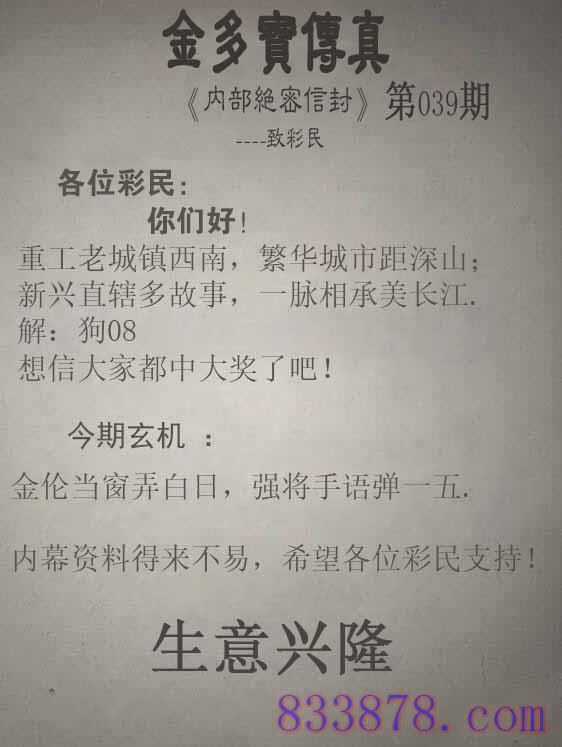 金多寶傳真
《内部絶密信封》第039期
----致彩民
各位彩民:
你们好!
重工老城镇西南，繁华城市距深山;
新兴直辖多故事，一脉相承美长江.
解：狗08
想信大家都中大奖了吧!
今期玄机 ：
金伦当窗弄白日，强将手语弹一五.
内幕资料得来不易，希望各位彩民支持!
生意兴隆
833878.com